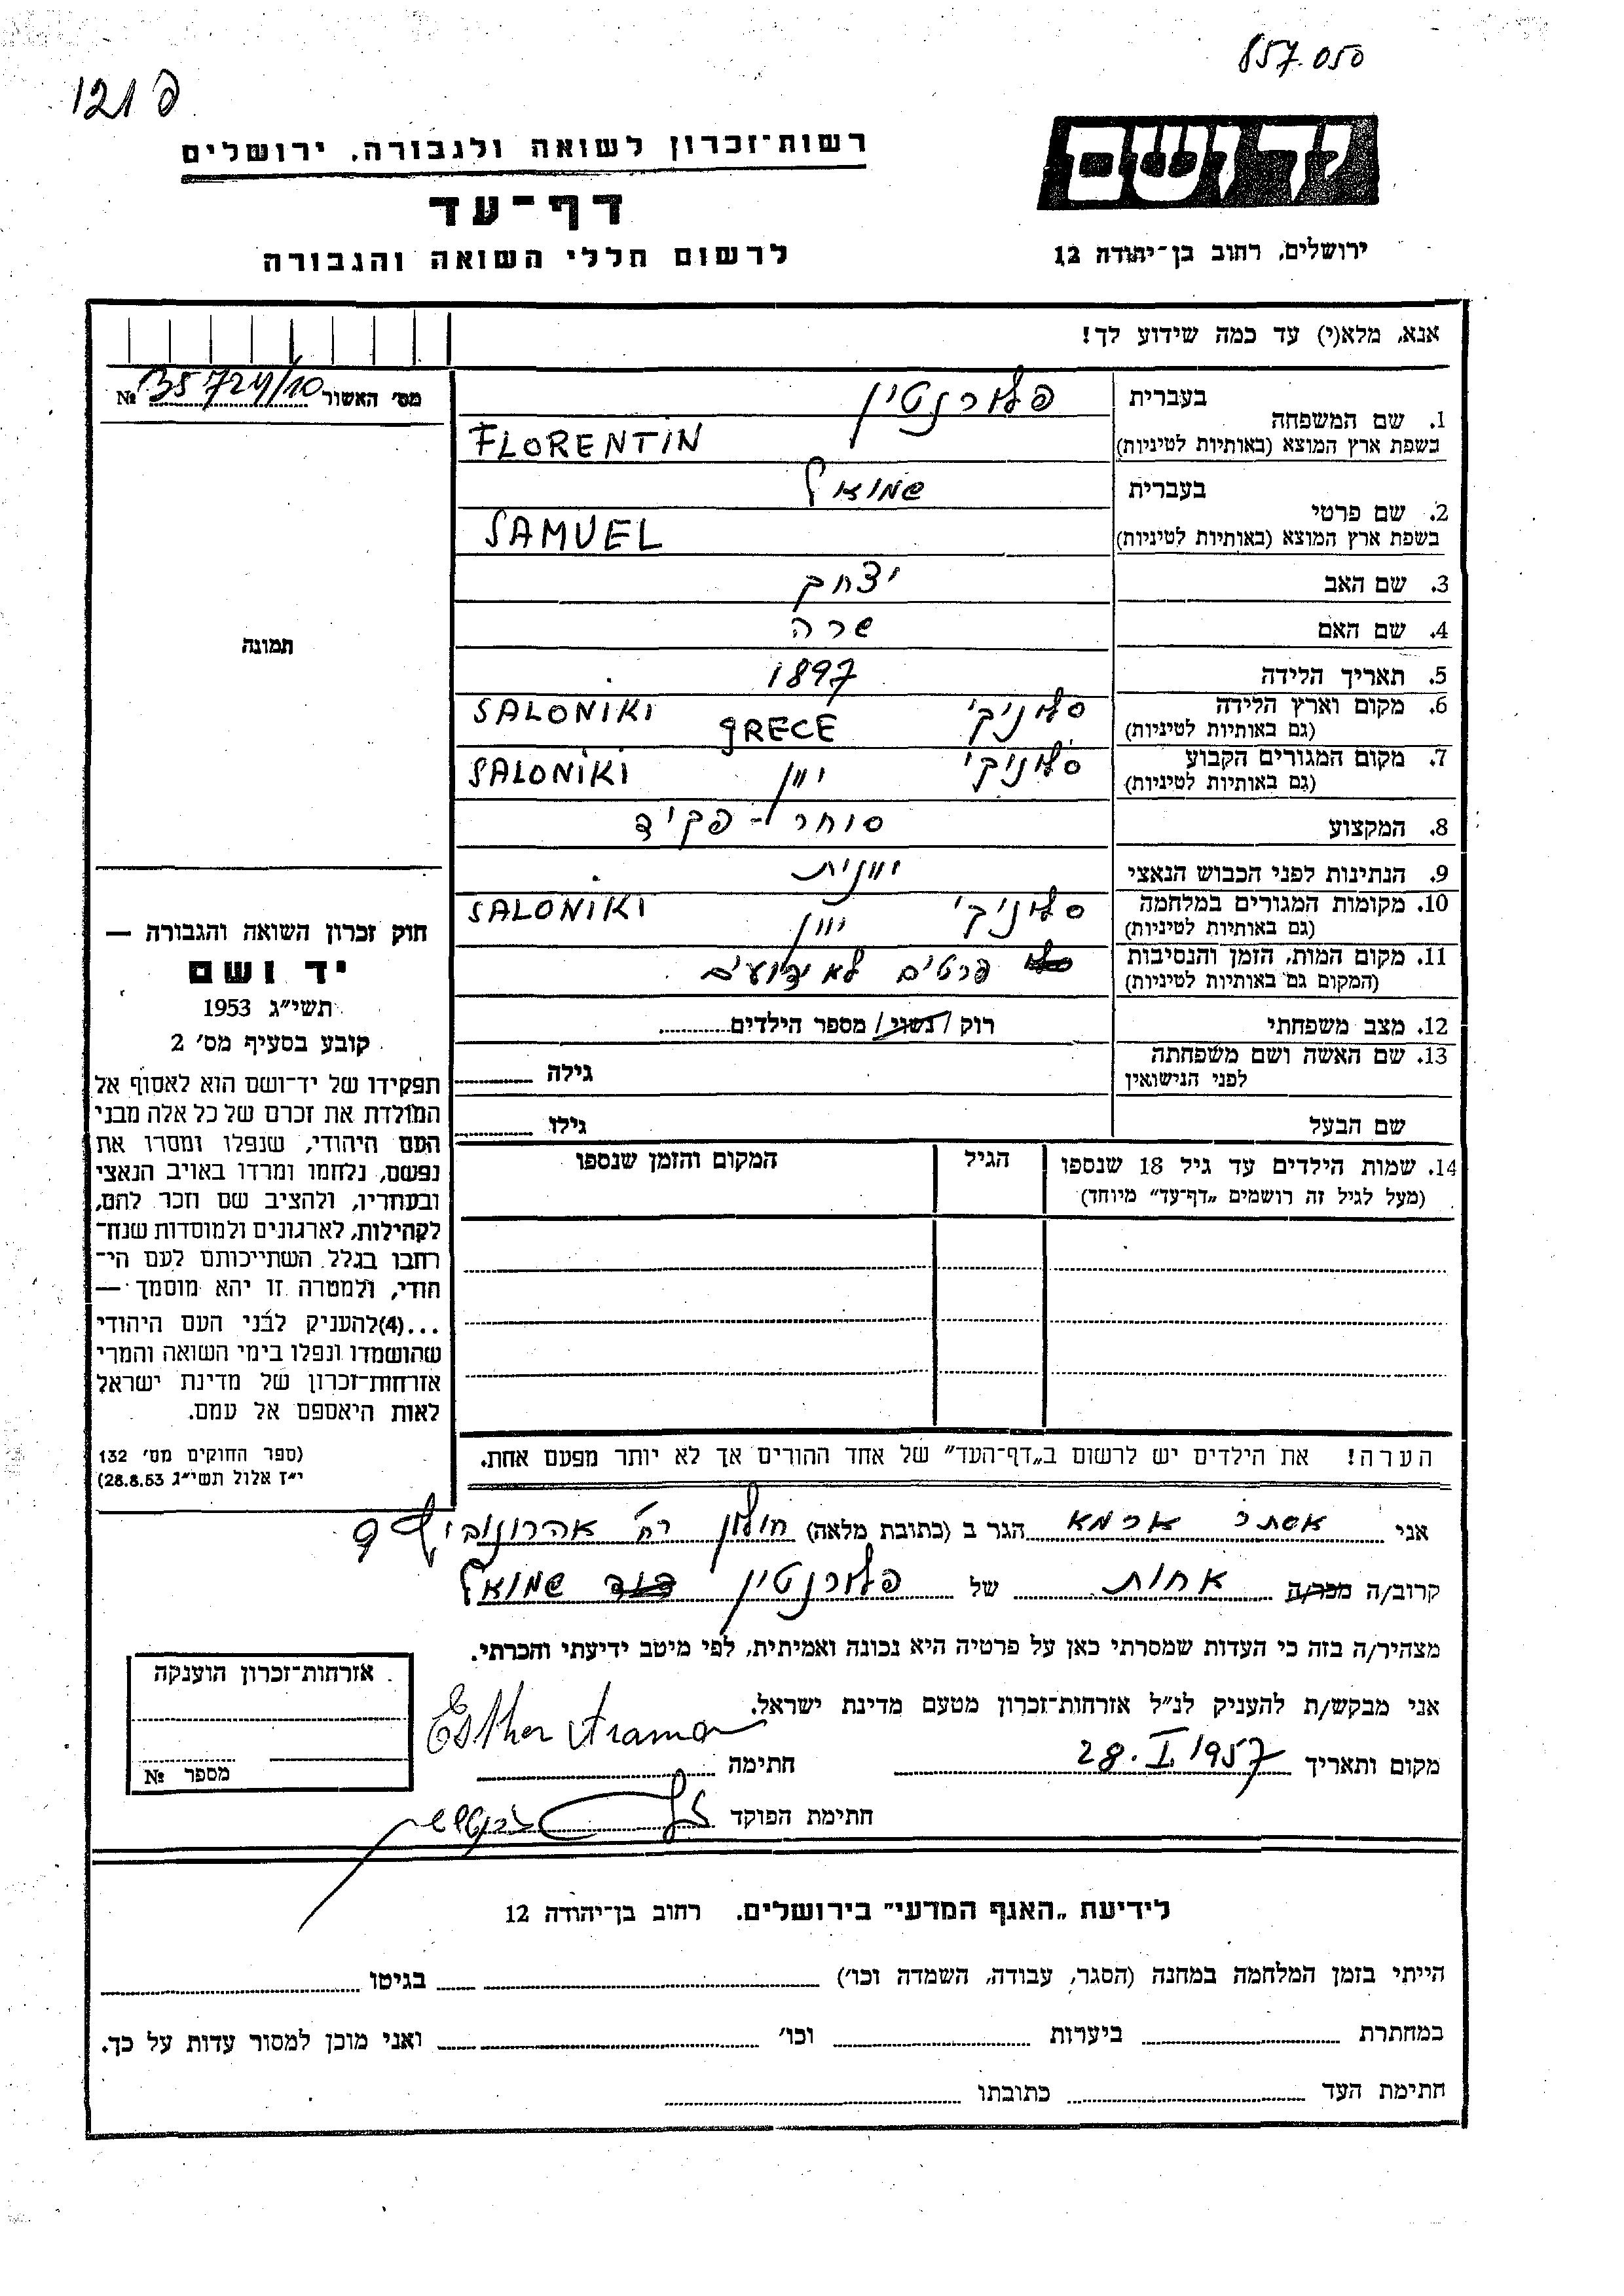 857.050
121 פ
יד ושם
רשות־זכרון לשואה ולגבורה, ירושלים
דף־עד
לרשום חללי השואה והגבורה
ירושלים, רחוב בן־יהודה 12
אנא, מלא(י) עד כמה שידוע לך!
מס׳ האשור 35724/10 №
1. שם המשפחה בעברית פלורנטין
בשפת ארץ המוצא (באותיות לטיניות) FLORENTIN
2. שם פרטי בעברית שמואל
בשפת ארץ המוצא (באותיות לטיניות) SAMUEL
3. שם האב יצחק
4. שם האם שרה
תמונה
5. תאריך הלידה 1897
6. מקום וארץ הלידה סלוניקי SALONIKI
(גם באותיות לטיניות) GRECE
7. מקום המגורים הקבוע סלוניקי יוון SALONIKI
(גם באותיות לטיניות)
8. המקצוע סוחר - פקיד
9. הנתינות לפני הכבוש הנאצי יוונית
10. מקומות המגורים במלחמה סלוניקי יוון SALONIKI
(גם באותיות לטיניות)
11. מקום המות, הזמן והנסיבות פרטים לא ידועים
(המקום גם באותיות לטיניות)
12. מצב משפחתי רוק / נשוי / מספר הילדים
13. שם האשה ושם משפחתה
לפני הנישואין גילה
שם הבעל גילו
14. שמות הילדים עד גיל 18 שנספו הגיל המקום והזמן שנספו
(מעל לגיל זה רושמים „דף־עד״ מיוחד)
חוק זכרון השואה והגבורה —
יד ושם
תשי״ג 1953
קובע בסעיף מס׳ 2
תפקידו של יד־ושם הוא לאסוף אל
המולדת את זכרם של כל אלה מבני
העם היהודי, שנפלו ומסרו את
נפשם, נלחמו ומרדו באויב הנאצי
ובעוזריו, ולהציב שם וזכר להם,
לקהילות, לארגונים ולמוסדות שנח־
רחבו בגלל השתייכותם לעם הי־
הודי, ולמטרה זו יהא מוסמך —
...(4)להעניק לבני העם היהודי
שהושמדו ונפלו בימי השואה והמרי
אזרחות־זכרון של מדינת ישראל
לאות היאספם אל עמם.
(ספר החוקים מס׳ 132
י״ז אלול תשי״ג 28.8.53)
הערה! את הילדים יש לרשום ב„דף־העד״ של אחד ההורים אך לא יותר מפעם אחת.
אני אסתר ארמא הגר ב (כתובת מלאה) חולון רח׳ אהרונוביץ 9
קרוב/ה מכר/ה אחות של פלורנטין דוד שמואל
מצהיר/ה בזה כי העדות שמסרתי כאן על פרטיה היא נכונה ואמיתית, לפי מיטב ידיעתי והכרתי.
אני מבקש/ת להעניק לנ״ל אזרחות־זכרון מטעם מדינת ישראל.
מקום ותאריך 28.I.1957 חתימה Esther Arama
חתימת הפוקד
אזרחות־זכרון הוענקה
מספר №
לידיעת „האגף המדעי״ בירושלים. רחוב בן־יהודה 12
הייתי בזמן המלחמה במחנה (הסגר, עבודה, השמדה וכו׳) בגיטו
במחתרת ביערות וכו׳ ואני מוכן למסור עדות על כך.
חתימת העד כתובתו